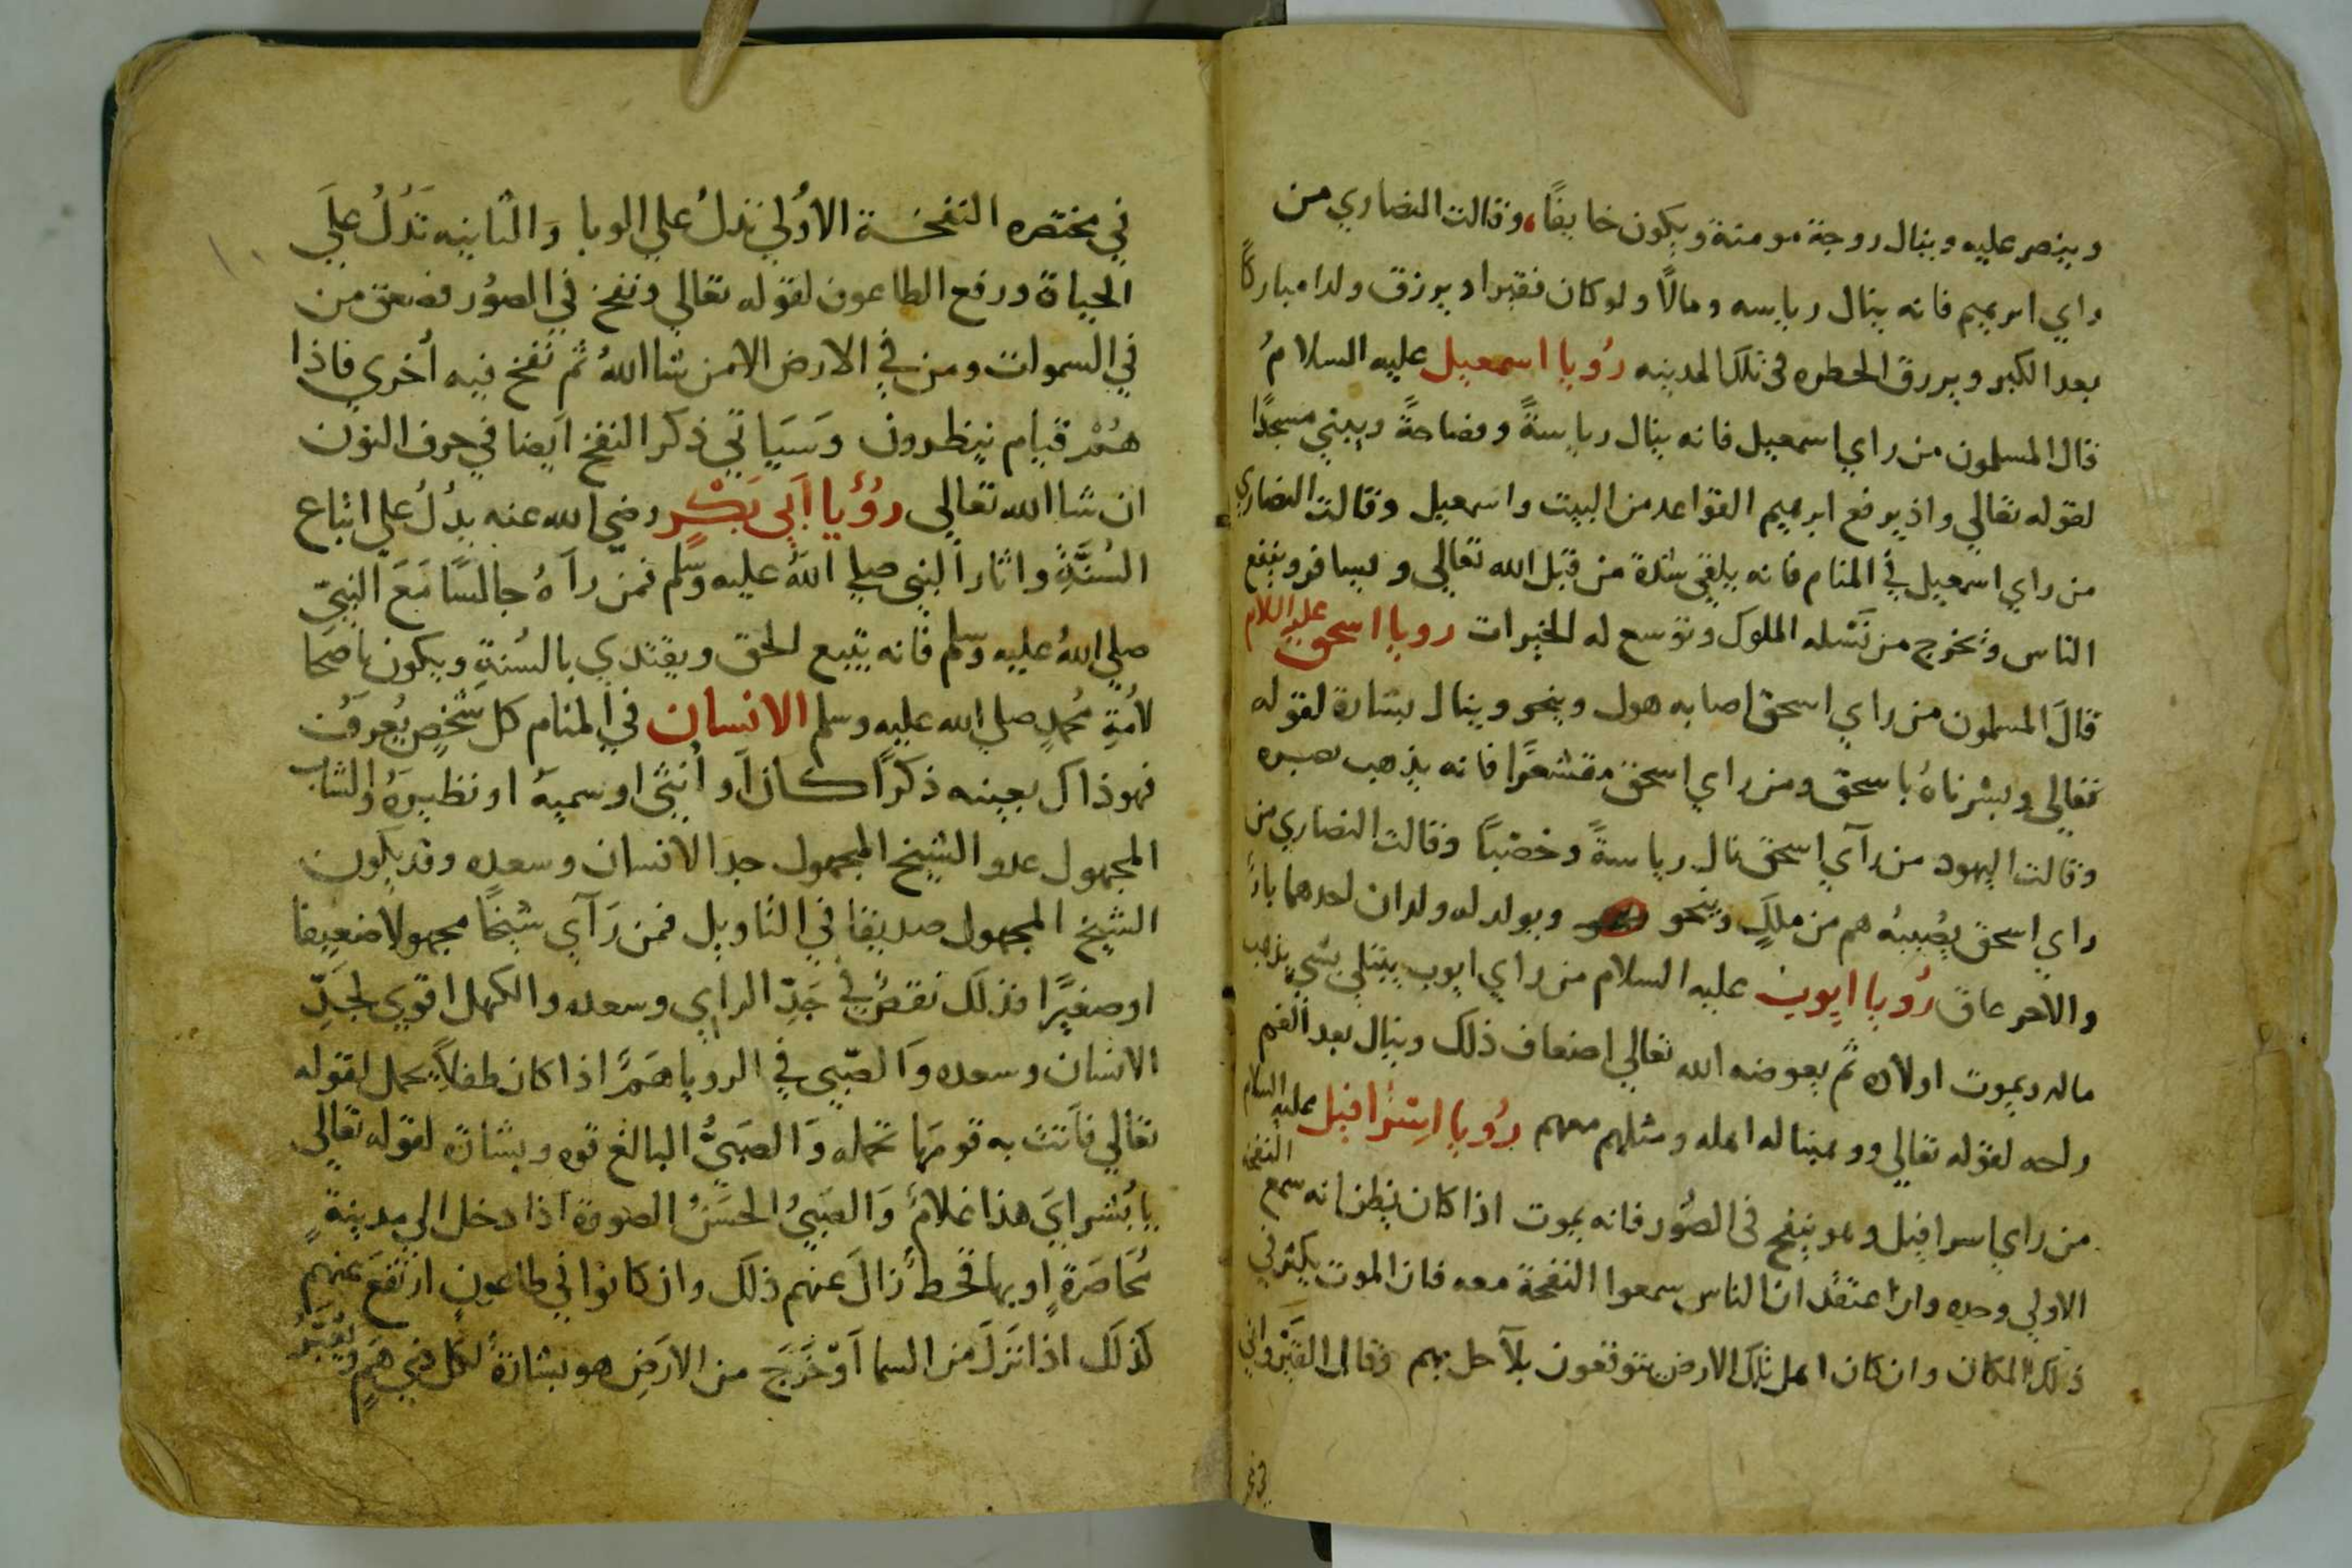 وينصر عليه وينال زوجة مومنة ويكون خايفاً، وقالت النصاري من
راي ابرهيم فانه ينال رياسه ومالاً ولو كان فقيرا ويرزق ولدا مباركاً
بعد الكبر ويرزق الحطوه في تلك المدينه رُويا اسمعيل عليه السلامُ
قال المسلمون من راي اسمعيل فانه ينال رياسةً وفصاحةً ويبني مسجدًا
لقوله تعالي واذ يرفع ابرهيم القواعد من البيت واسمعيل وقالت النصاري
من راي اسمعيل في المنام فانه يلقي شدة من قبل الله تعالي ويسافر وينفع
الناس ويخرج من نَسْله الملوك وتوسع له الخيرات رويا اسحق عليه السلام
قالَ المسلمون من راي اسحق اصابه هول وينجو وينال بشارة لقوله
تعالي وبشرناهُ باسحق ومن راي اسحق مقشعرًا فانه يذهب بصره
وقالت اليهود من رآي اسحق نال رياسةً وخصْباً وقالت النصاري من
راي اسحق يصُيبهُ هم من ملكٍ وينجو ويولد له ولدان احدهما بارً
والاخر عاق رُويا ايوب عليه السلام من راي ايوب يبتلي بشي يذهب
ماله ويموت اولاده ثم يعوضه الله تعالي اضعاف ذلك وينال بعد الغم
راحه لقوله تعالي ووهبنا له اهله ومثلهم معهم رُويا اسْرافيل عليه السلام
من راي اسرافيل وهو ينفخ في الصُور فانه يموت اذا كان يظن انه سمع النفخة
الاولي وحده وان اعتقد ان الناس سمعوا النفخة معه فان الموت يكثر في
ذلك المكان وان كان اهل تلك الارض يتوقعون بلآ حل بهم وقال القَيْرواني
في مختصره النفخة الاُولي تدلُ علي الوبا وَالثانيه تَدُلُ علَي
الحياة ورفع الطاعون لقوله تعالي ونفخ في الصُور فصعق من
في السموات ومن في الارض الا من شا اللهُ ثم نفخ فيه أخري فاذا
هُمْ قيام ينظرون وَسَيَاتي ذكر النفخ اَيضا في حرف النون
ان شا الله تعالي رُؤيا اَبي بَكْرٍ رضي الله عنه يدُلُ علي اتباع
السُنَّةِ واثار النبي صلي اللهُ عليه وسلم فمن رآهُ جالسًا مَعَ النبيّ
صلي اللهُ عليه وسلم فانه يتبع الحق ويقتدي بالسُنةِ ويكون ناصحًا
لاُمةِ مُحمدٍ صلي الله عليه وسلم الانسان في المنام كل شَخْصٍ يُعرَفُ
فهو ذاك بعينه ذكرًا كان اَو اُنثي او سميهُ او نظيرهُ والشاب
المجهول عدو الشيخ المجهول جد الانسان وسعده وقد يكون
الشيخ المجهول صديقا في التاويل فمن رَآي شيخًا مجهولا ضعيفا
او صغيرًا فذلك نقصٌ في جَدِّ الراي وسعده والكهل اقوي لجَدِّ
الانسان وسعده وَالصّبي في الرويا هَمّ اذا كان طفلاً يحمل لقوله
تعالي فاَتت به قومَها تحمله وَالصبيُّ البالغ قوه وبشارة لقوله تعالي
يابُشرايَ هذا غلامٌ وَالصَبيُ الحسَنُ الصورة اذا دخل الي مدينةٍ
مُحَاصَرةٍ اوبها قحط زالَ عنهم ذلك وان كانوا في طاعونٍ ارتفعَ عنهم
كذلك اذا نَزلَ من السما اَوْ خَرَجَ من الارَضِ هو بشارةٌ لكل ذي هَمٍ ويُعَبَّرُ